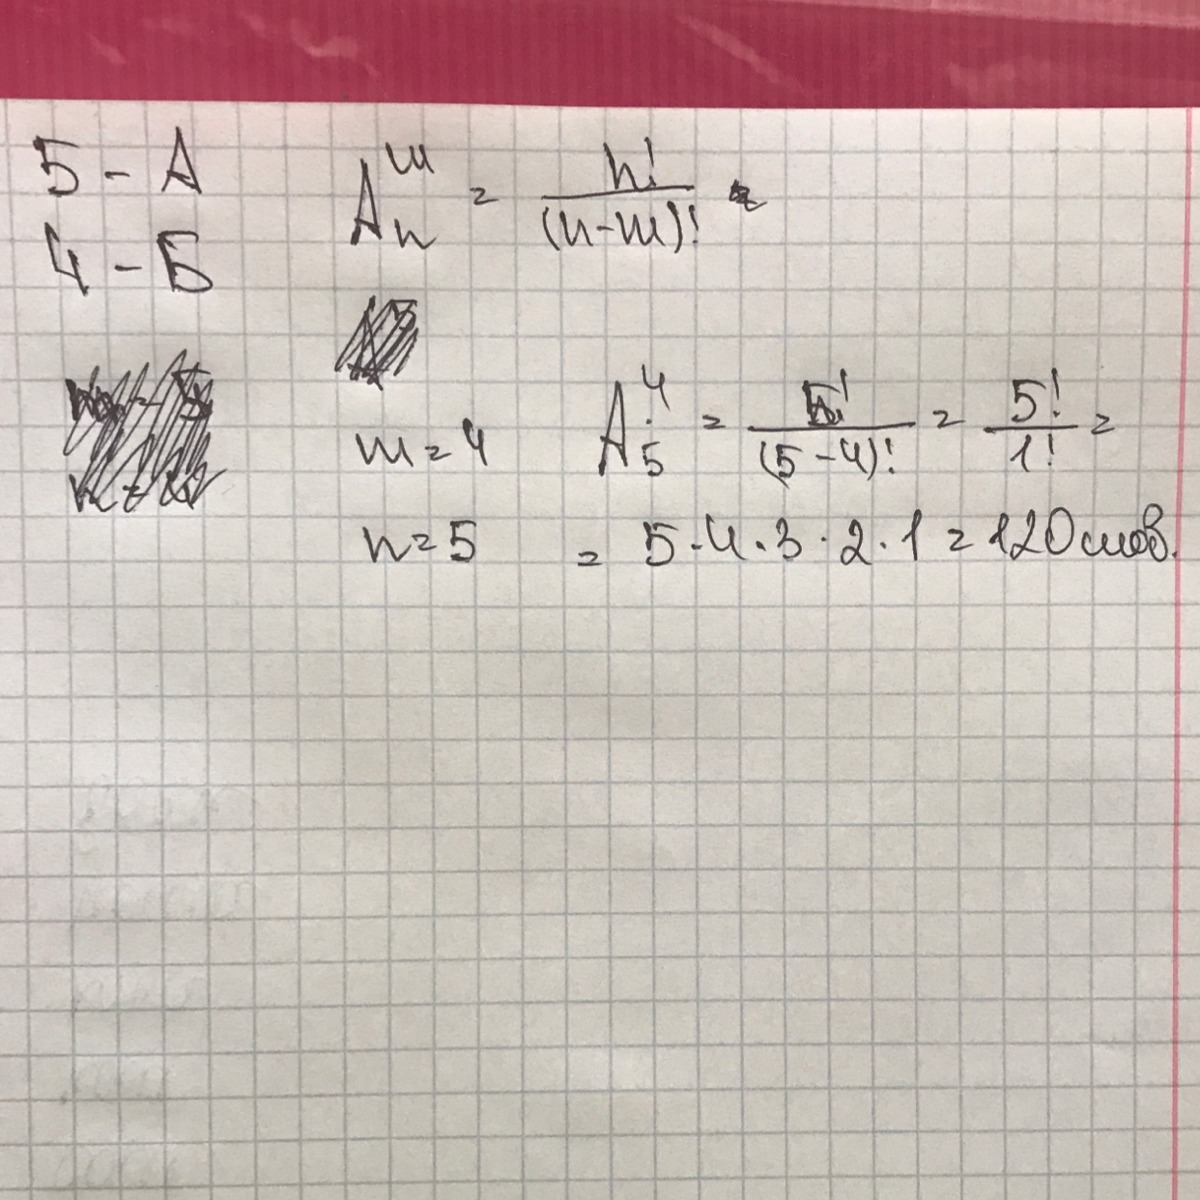 5 - А
4 - Б
A_n^m = n! / (n-m)! =
m = 4
n = 5
A_5^4 = 5! / (5-4)! = 5! / 1! =
= 5 · 4 · 3 · 2 · 1 = 120 слов.